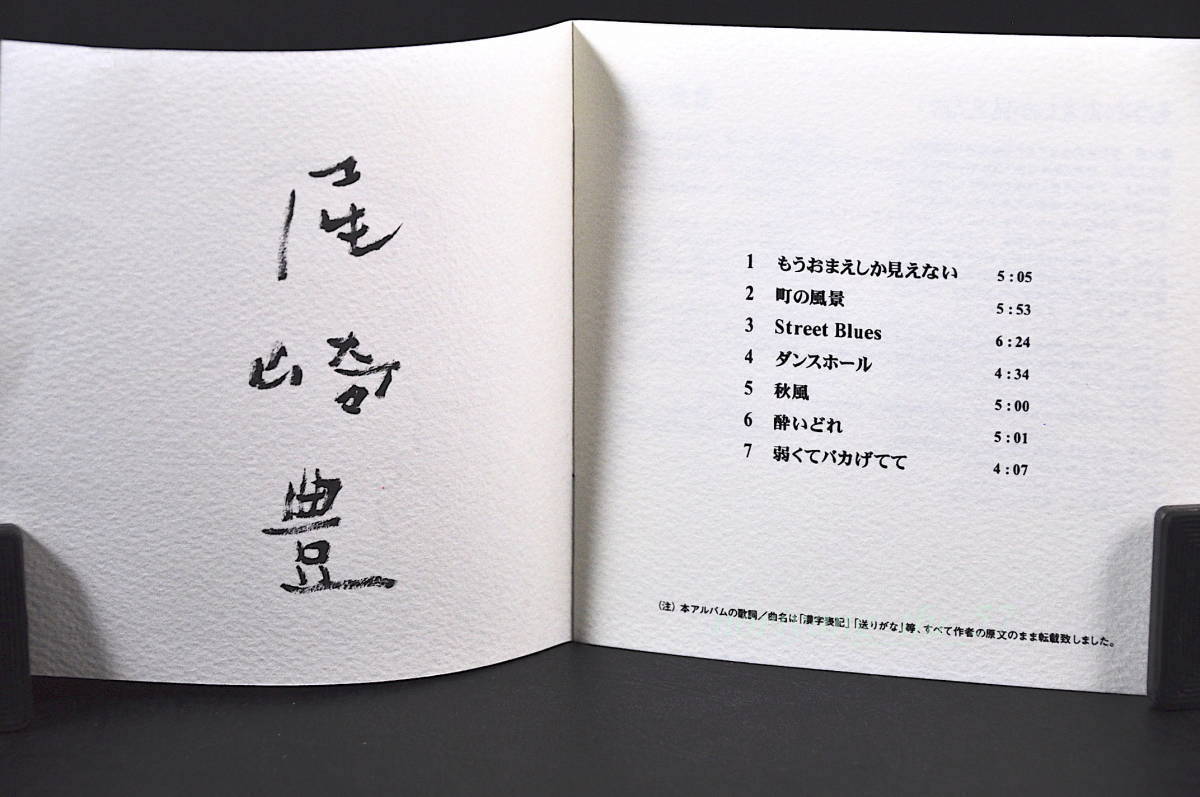 尾崎豊
1 もうおまえしか見えない 5:05
2 町の風景 5:53
3 Street Blues 6:24
4 ダンスホール 4:34
5 秋風 5:00
6 酔いどれ 5:01
7 弱くてバカげてて 4:07
（注）本アルバムの歌詞／曲名は「漢字表記」「送りがな」等、すべて作者の原文のまま転載致しました。